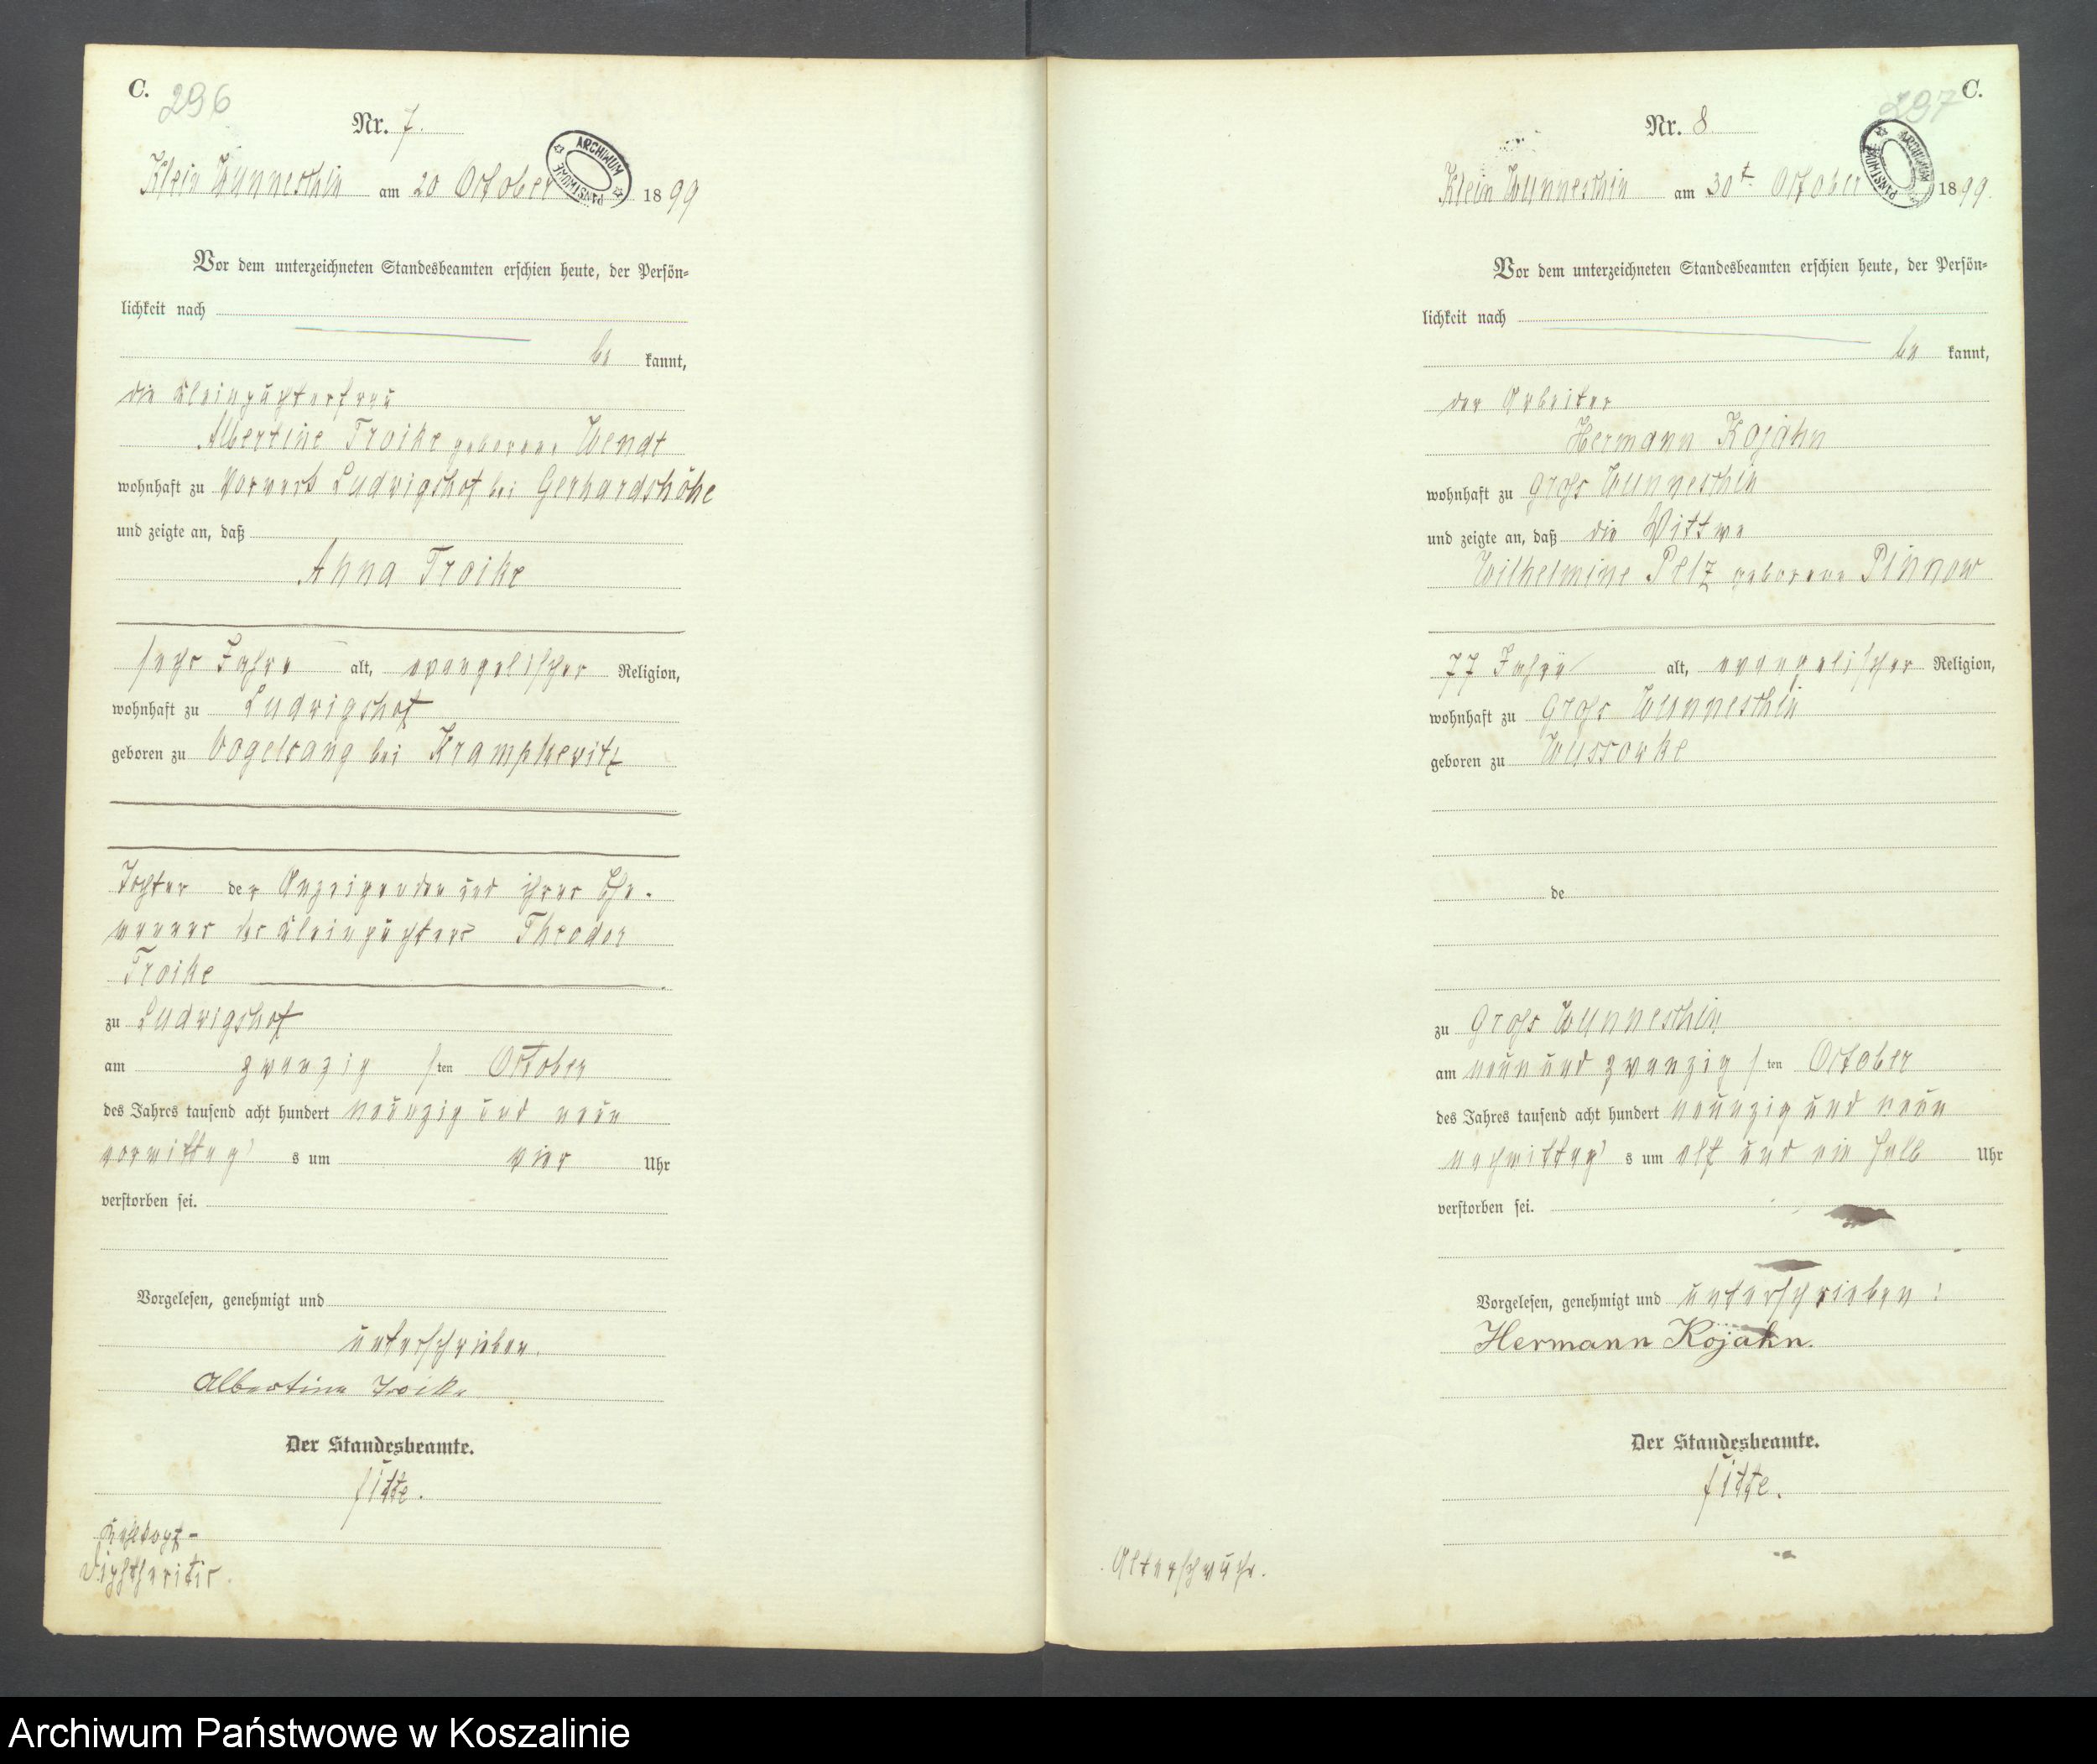 C.
296
Nr. 7.
ARCHIWUM PAŃSTWOWE
Klein Wunneschin am 20 October 1899
Vor dem unterzeichneten Standesbeamten erschien heute, der Persön-
lichkeit nach
be kannt,
die Kleinpächterfrau
Albertine Troike geborene Wendt
wohnhaft zu Vorwerk Ludwigshof bei Gerhardshöhe
und zeigte an, daß
Anna Troike
sechs Jahre alt, evangelischer Religion,
wohnhaft zu Ludwigshof
geboren zu Vogelsang bei Krampkewitz
Tochter der Anzeigenden und ihres Ehe-
mannes des Kleinpächters Theodor
Troike
zu Ludwigshof
am zwanzig sten October
des Jahres tausend acht hundert neunzig und neun
vormittag s um vier Uhr
verstorben sei.
Vorgelesen, genehmigt und
unterschrieben.
Albertine Troike
Der Standesbeamte.
Kehlkopf-
Diphtheritis.
C.
297
Nr. 8.
ARCHIWUM PAŃSTWOWE
Klein Wunneschin am 30t October 1899.
Vor dem unterzeichneten Standesbeamten erschien heute, der Persön-
lichkeit nach
be kannt,
der Arbeiter
Hermann Kojahn
wohnhaft zu Groß Wunneschin
und zeigte an, daß die Wittwe
Wilhelmine Pelz geborene Pinnow
77 Jahre alt, evangelischer Religion,
wohnhaft zu Groß Wunneschin
geboren zu Wussowke
de
zu Groß Wunneschin
am neun und zwanzig sten October
des Jahres tausend acht hundert neunzig und neun
nachmittag s um elf und ein halb Uhr
verstorben sei.
Vorgelesen, genehmigt und unterschrieben:
Hermann Kojahn.
Der Standesbeamte.
Altersschwäche.
Archiwum Państwowe w Koszalinie